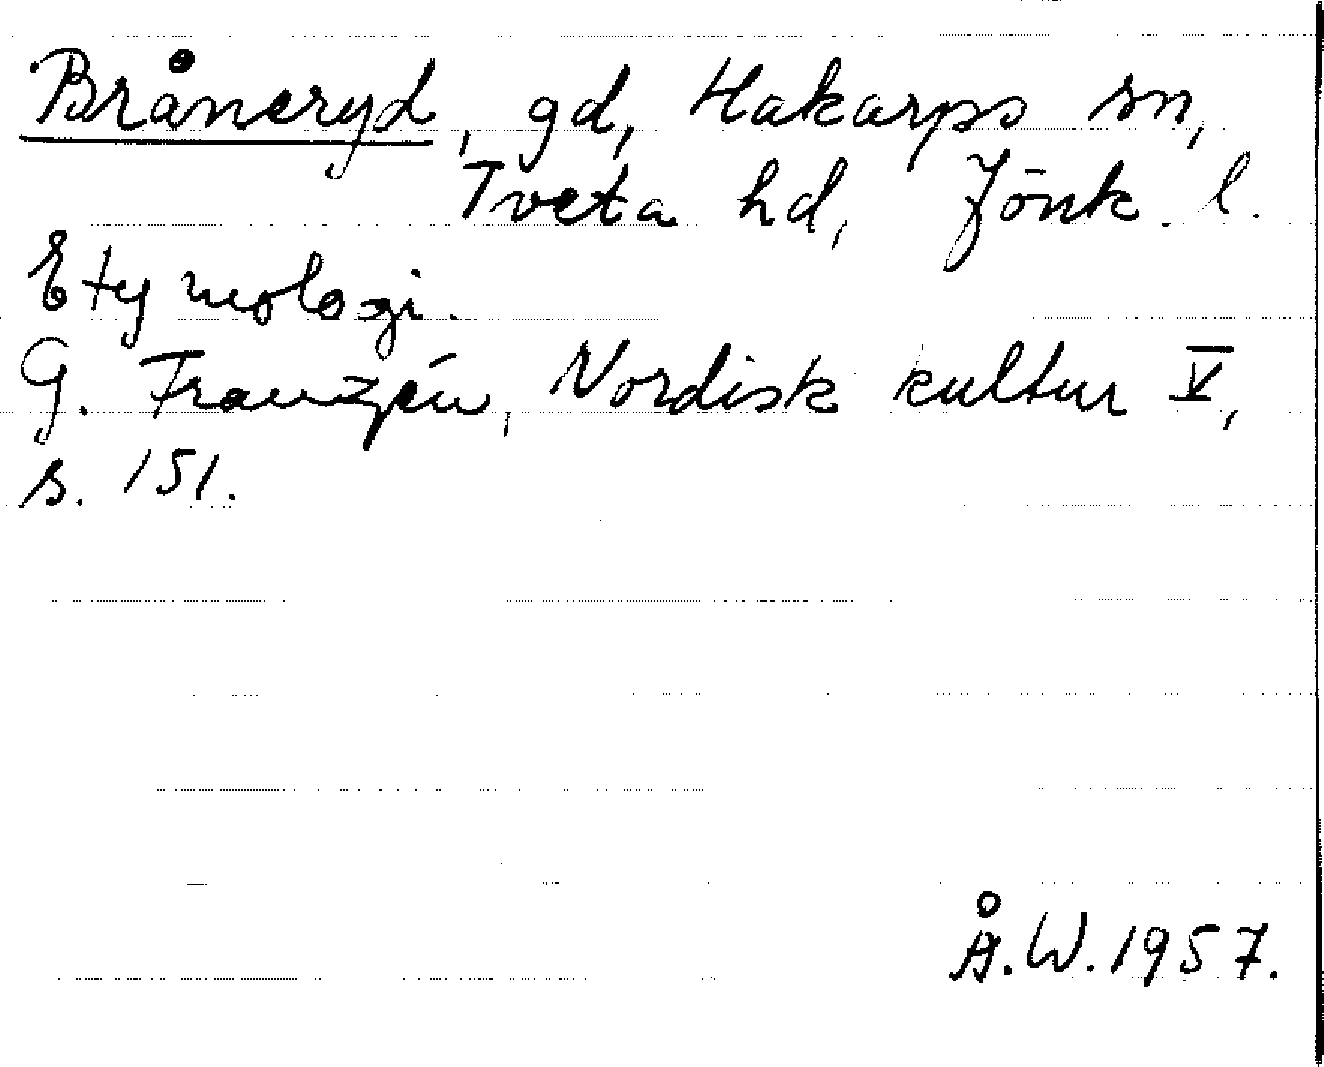 Bråneryd, gd, Hakarps sn,
Tveta hd, Jönk. l.
Etymologi.
G. Franzén, Nordisk kultur V,
s. 151.
Å.W. 1957.